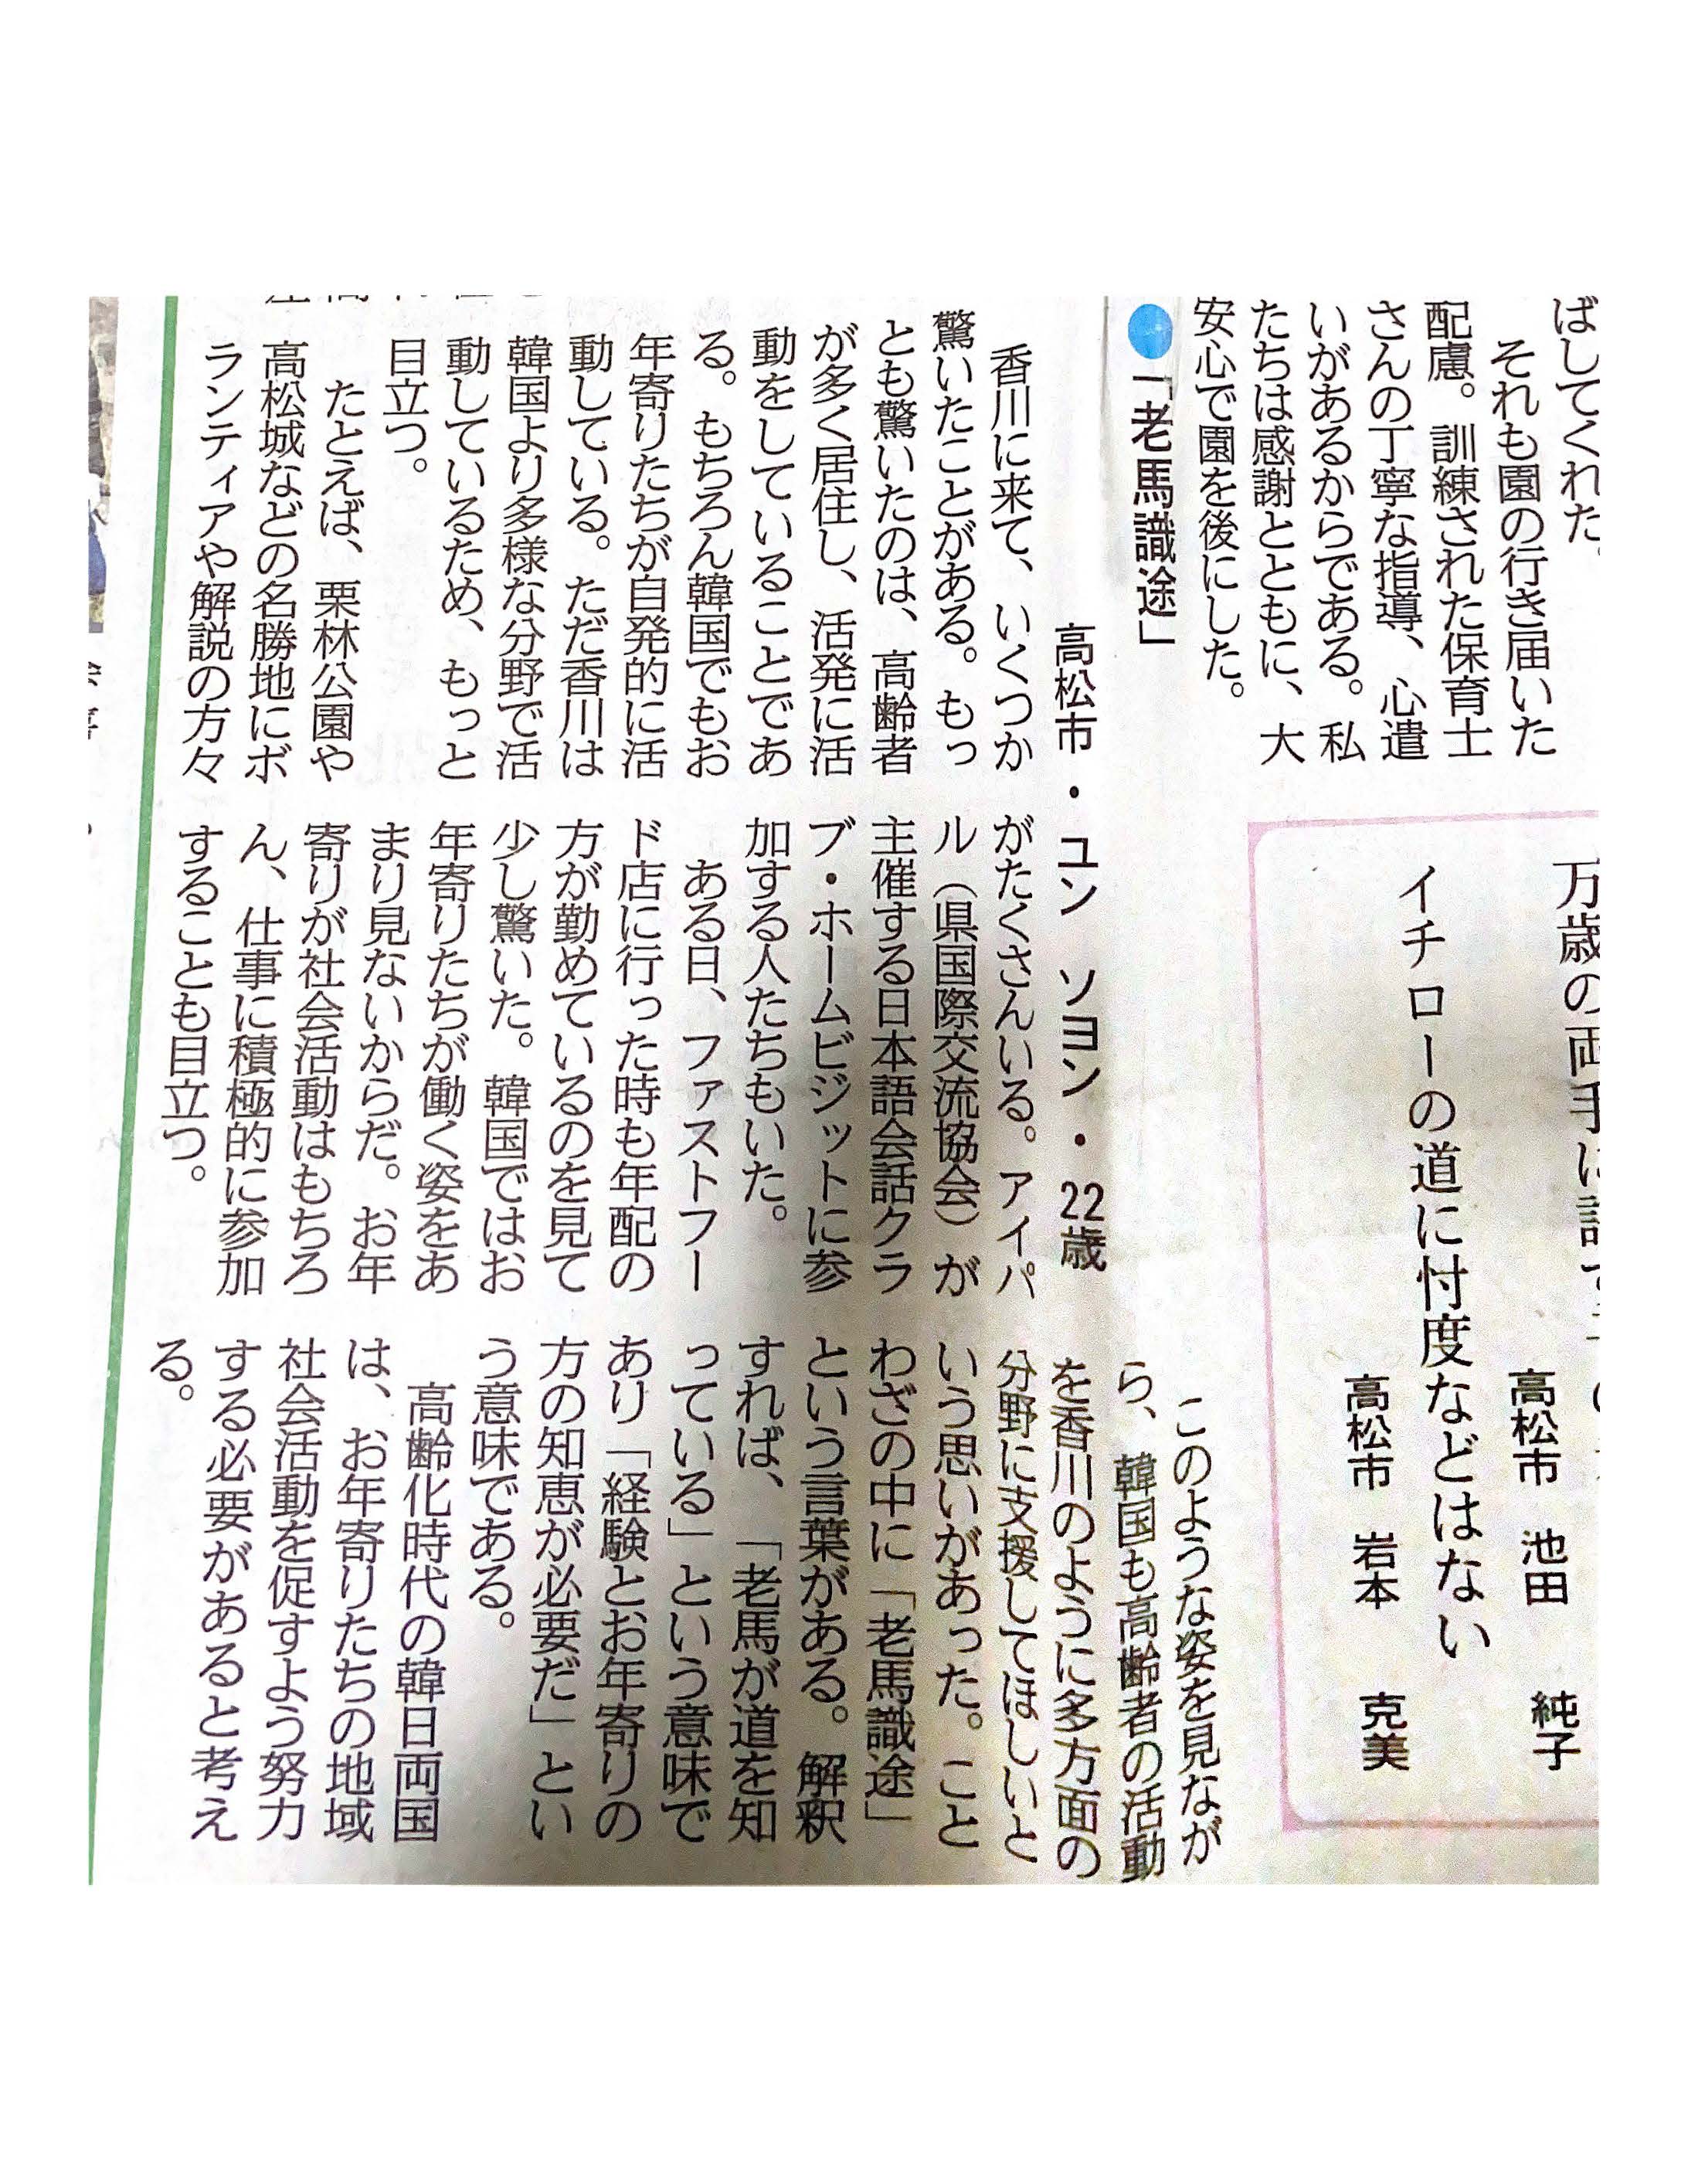 ばしてくれた。
それも園の行き届いた
配慮。訓練された保育士
さんの丁寧な指導、心遣
いがあるからである。私
たちは感謝とともに、大
安心で園を後にした。
万歳の両手に
高松市 池田 純子
イチローの道に忖度などはない
高松市 岩本 克美
●「老馬識途」
高松市・ユン ソヨン・22歳
香川に来て、いくつか
驚いたことがある。もっ
とも驚いたのは、高齢者
が多く居住し、活発に活
動をしていることであ
る。もちろん韓国でもお
年寄りたちが自発的に活
動している。ただ香川は
韓国より多様な分野で活
動しているため、もっと
目立つ。
たとえば、栗林公園や
高松城などの名勝地にボ
ランティアや解説の方々
がたくさんいる。アイパ
ル（県国際交流協会）が
主催する日本語会話クラ
ブ・ホームビジットに参
加する人たちもいた。
ある日、ファストフー
ド店に行った時も年配の
方が勤めているのを見て
少し驚いた。韓国ではお
年寄りたちが働く姿をあ
まり見ないからだ。お年
寄りが社会活動はもちろ
ん、仕事に積極的に参加
することも目立つ。
このような姿を見なが
ら、韓国も高齢者の活動
を香川のように多方面の
分野に支援してほしいと
いう思いがあった。こと
わざの中に「老馬識途」
という言葉がある。解釈
すれば、「老馬が道を知
っている」という意味で
あり「経験とお年寄りの
方の知恵が必要だ」とい
う意味である。
高齢化時代の韓日両国
は、お年寄りたちの地域
社会活動を促すよう努力
する必要があると考え
る。